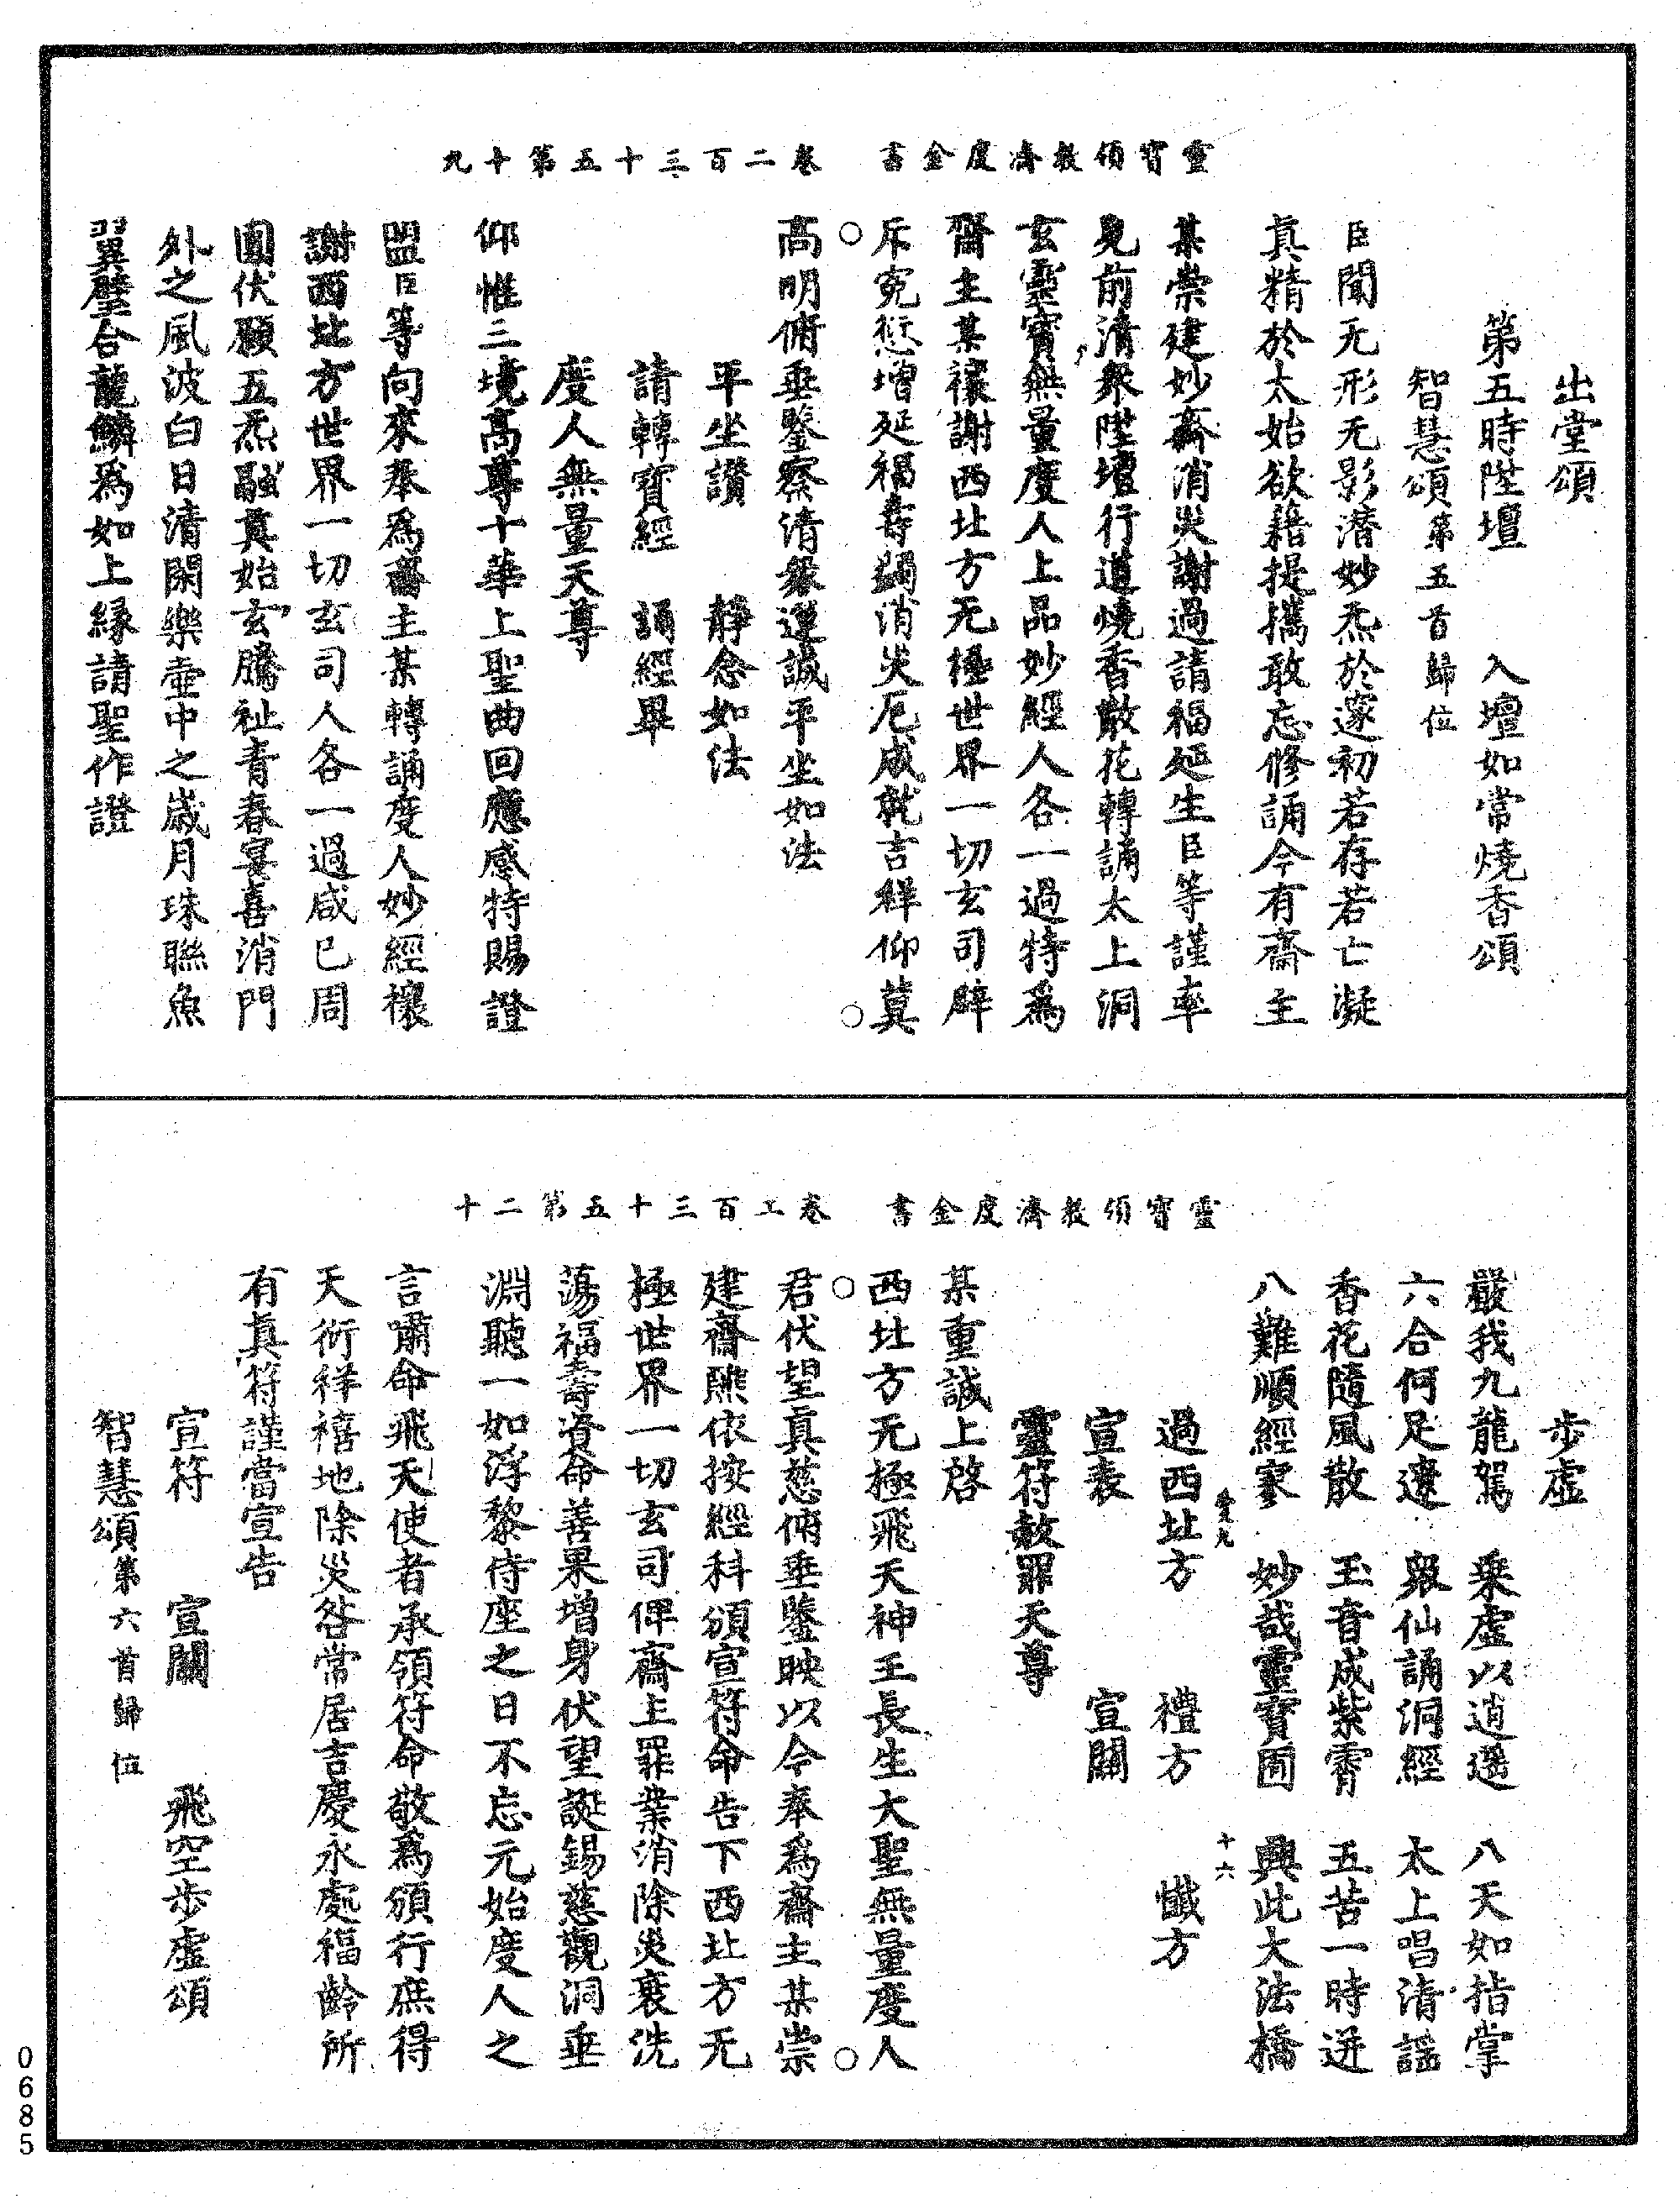 靈寶領教濟度金書　卷二百三十五第十九
出堂頌
第五時陞壇　入壇如常燒香頌
智慧頌第五首歸位
臣聞无形无影濳妙炁於邃初若存若亡凝
真精於太始欲藉提攜敢忘修誦今有齋主
某崇建妙齋消災謝過請福延生臣等謹率
見前清衆陞壇行道燒香散花轉誦太上洞
玄靈寶無量度人上品妙經人各一過特爲
齋主某禳謝西北方无極世界一切玄司辟
斥寃愆增延福壽蠲消災厄成就吉祥仰莫
高明俯垂鑒察清衆運誠平坐如法
平坐讃　靜念如法
請轉寶經　誦經畢
度人無量天尊
仰惟三境高尊十華上聖曲回應感特賜證
盟臣等向來奉爲齋主某轉誦度人妙經禳
謝西北方世界一切玄司人各一過咸已周
圓伏願五炁融真始玄騰祉青春宴喜消門
外之風波白日清閑樂壷中之歲月珠聯魚
翼璧合龍鱗爲如上縁請聖作證
靈寶領教濟度金書　卷二百三十五第二十
步虛
嚴我九龍駕　乗虛以逍遥　八天如指掌
六合何足遼　衆仙誦洞經　太上唱清謡
香花隨風散　玉音成紫霄　五苦一時迸
八難順經寥　妙哉靈寶囿　興此大法橋
十六
過西北方　禮方　懺方
宣表　宣關
靈符赦罪天尊
某重誠上啓
西北方无極飛天神王長生大聖無量度人
君伏望真慈俯垂鑒映以今奉爲齋主某崇
建齋熊依按經科頒宣符命告下西北方无
極世界一切玄司俾齋主罪業消除災衰洗
蕩福壽資命善果增身伏望誕錫慈觀洞垂
淵聽一如浮黎侍座之日不忘元始度人之
言嘯命飛天使者承領符命敬爲頒行庶得
天衍祥禧地除災咎常居吉慶永處福齡所
有真符謹當宣告
宣符　宣關　飛空步虛頌
智慧頌第六首歸位
0685